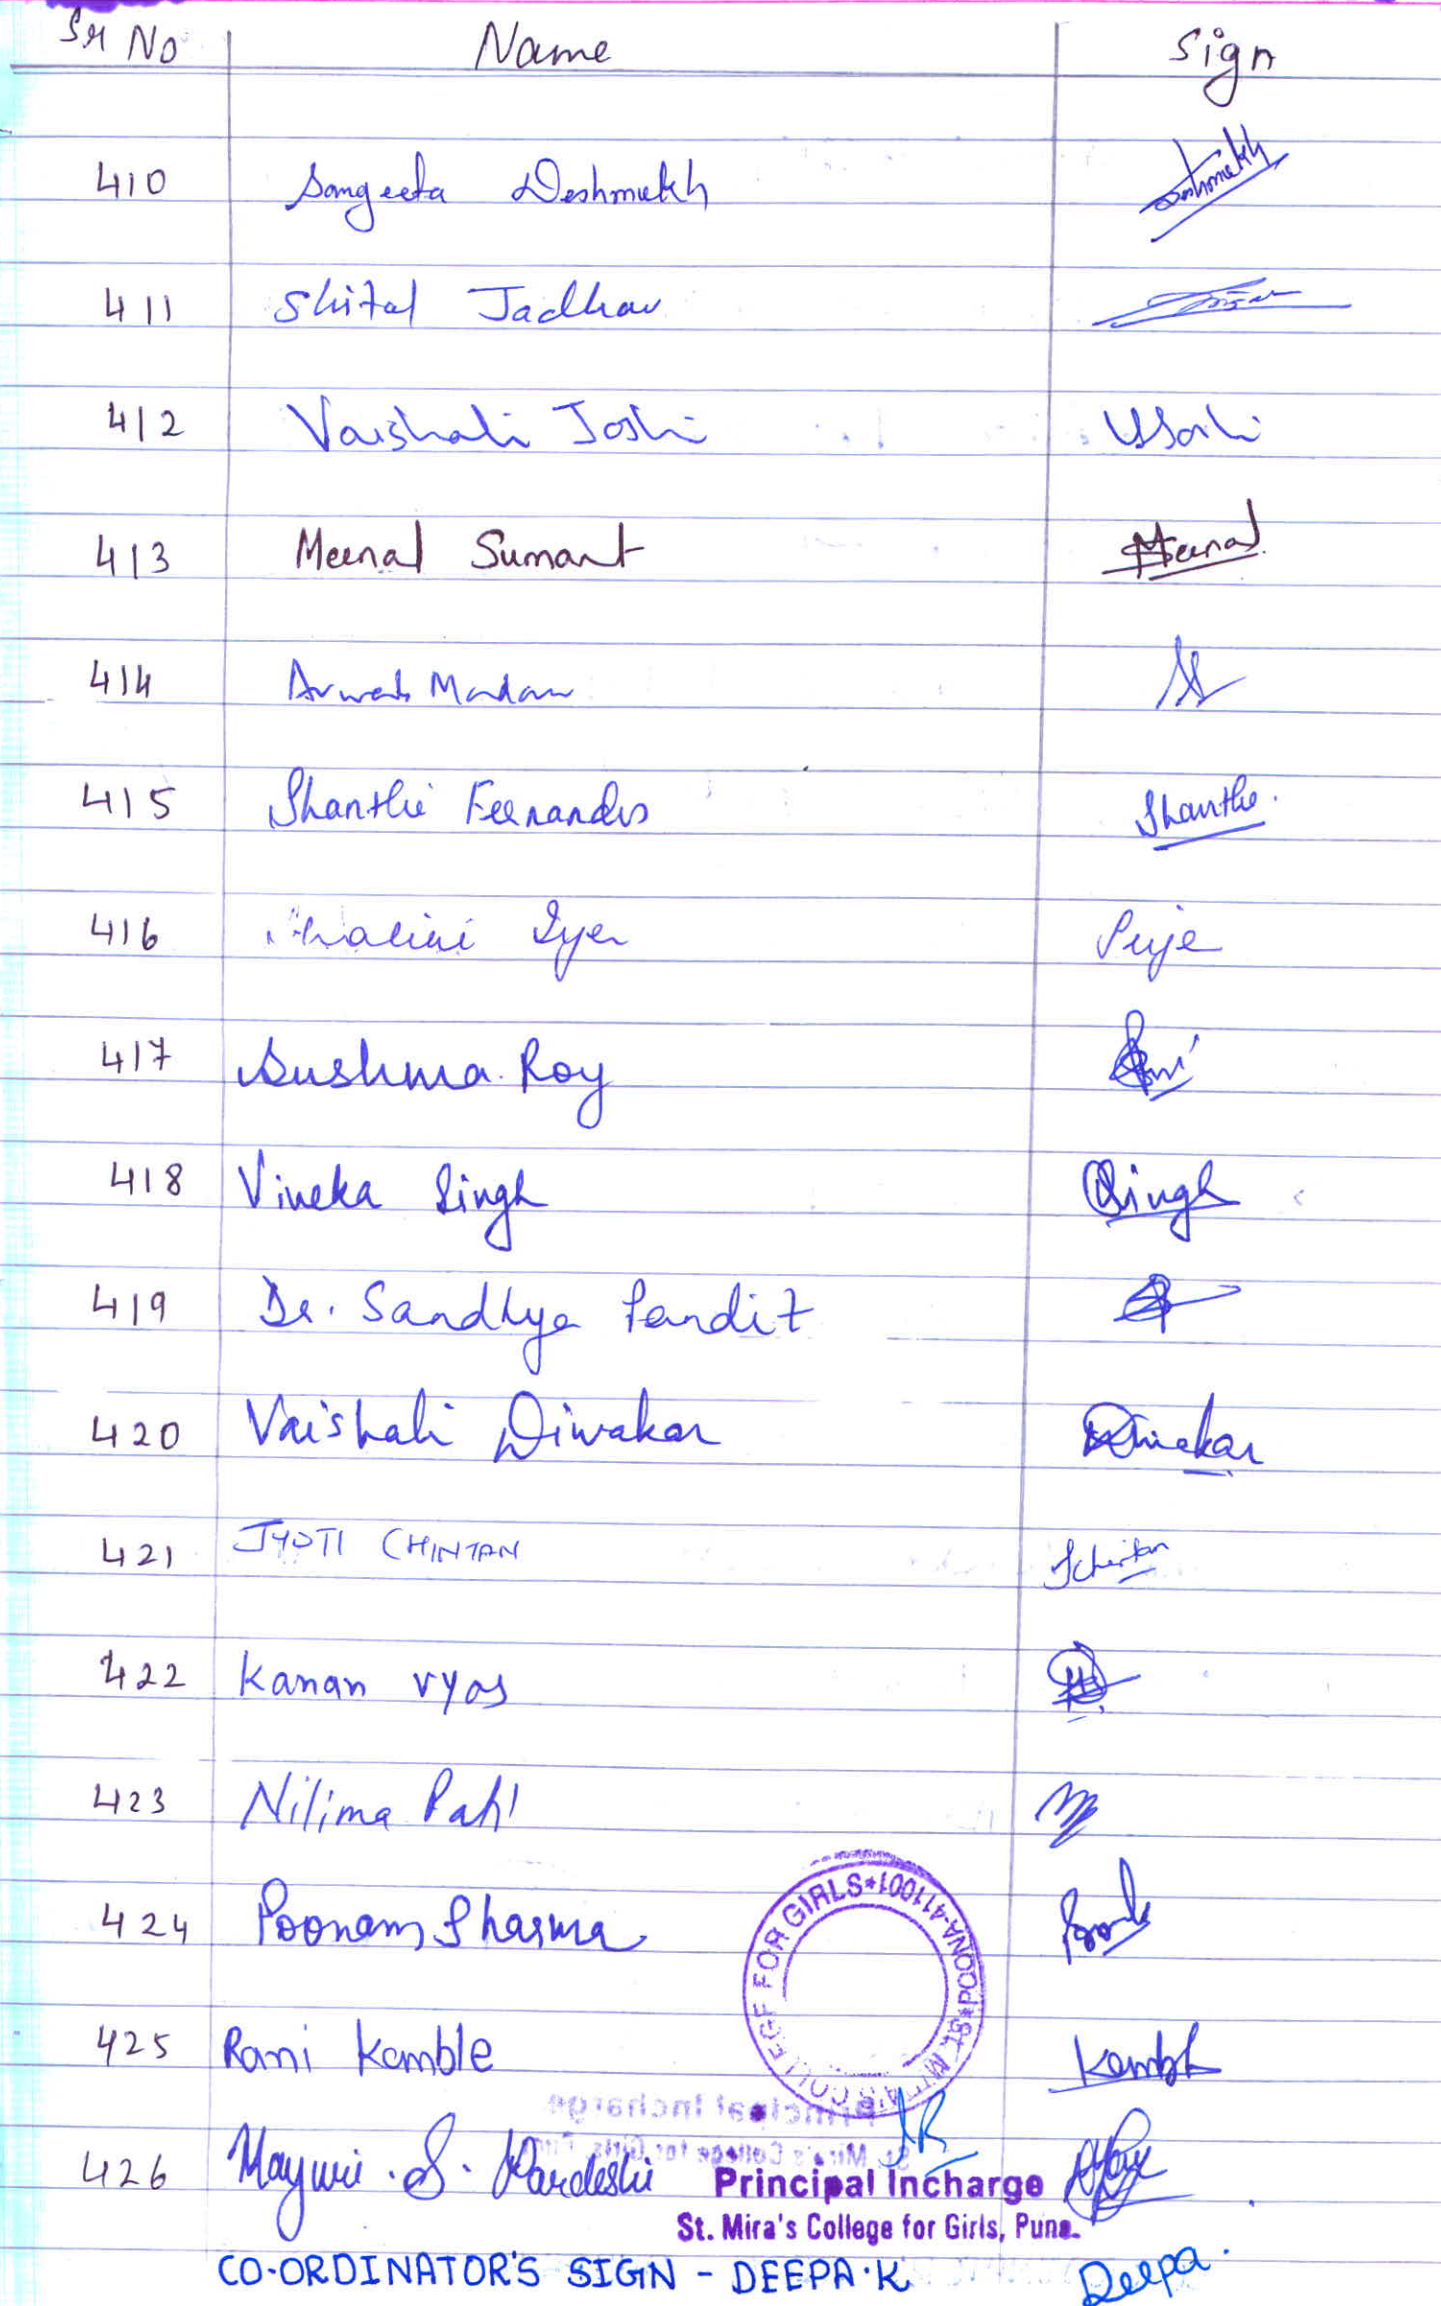 Sr No Name Sign
410 Sangeeta Deshmukh Deshmukh
411 Shital Jadhav
412 Vaishali Joshi VJoshi
413 Meenal Sumant Meenal
414
415 Shanthi Fernandes Shanthi.
416 Iyer
417 Sushma Roy
418 Viveka Singh Singh
419 Dr. Sandhya Pandit
420 Vaishali Diwakar Diwakar
421 JYOTI CHINTAN JChintan
422 Kanan vyas
423 Nilima Patil
424 Poonam Sharma
425 Rani Kamble Kamble
426 Mayuri .S. Pardeshi
ST. MIRA'S COLLEGE FOR GIRLS*POONA-411001*
Principal Incharge
St. Mira's College for Girls, Pune.
CO-ORDINATOR'S SIGN - DEEPA.K Deepa.